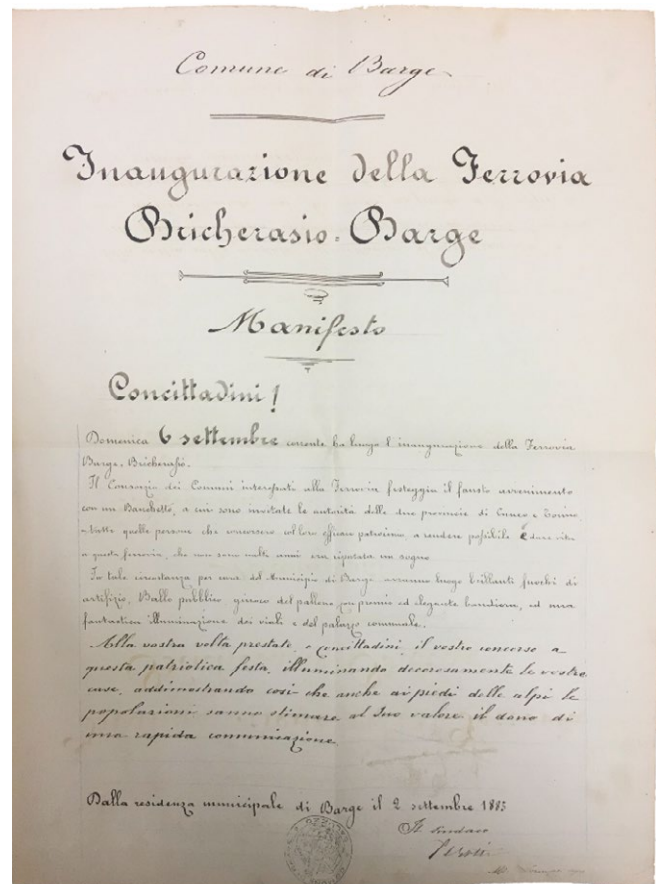 Comune di Barge
Inaugurazione della Ferrovia
Bricherasio-Barge
Manifesto
Concittadini!
Domenica 6 settembre corrente ha luogo l'inaugurazione della Ferrovia
Barge-Bricherasio.
Il Consorzio dei Comuni interessati alla Ferrovia festeggia il fausto avvenimento
con un Banchetto, a cui sono invitate le autorità delle due provincie di Cuneo e Torino,
e tutte quelle persone che concorsero col loro efficace patrocinio, a rendere possibile e dare vita
a questa ferrovia, che non sono molti anni era riputata un sogno.
In tale circostanza per cura del Municipio di Barge, avranno luogo brillanti fuochi di
artifizio, Ballo pubblico, giuoco del pallone con premio ed elegante bandiera, ed una
fantastica illuminazione dei viali e del palazzo comunale.
Alla vostra volta prestate, o concittadini il vostro concorso a
questa patriotica festa, illuminando decorosamente le vostre
case, addimostrando così che anche ai piedi delle alpi le
popolazioni sanno stimare al suo valore il dono di
una rapida comunicazione.
Dalla residenza municipale di Barge il 2 settembre 1885
Il Sindaco